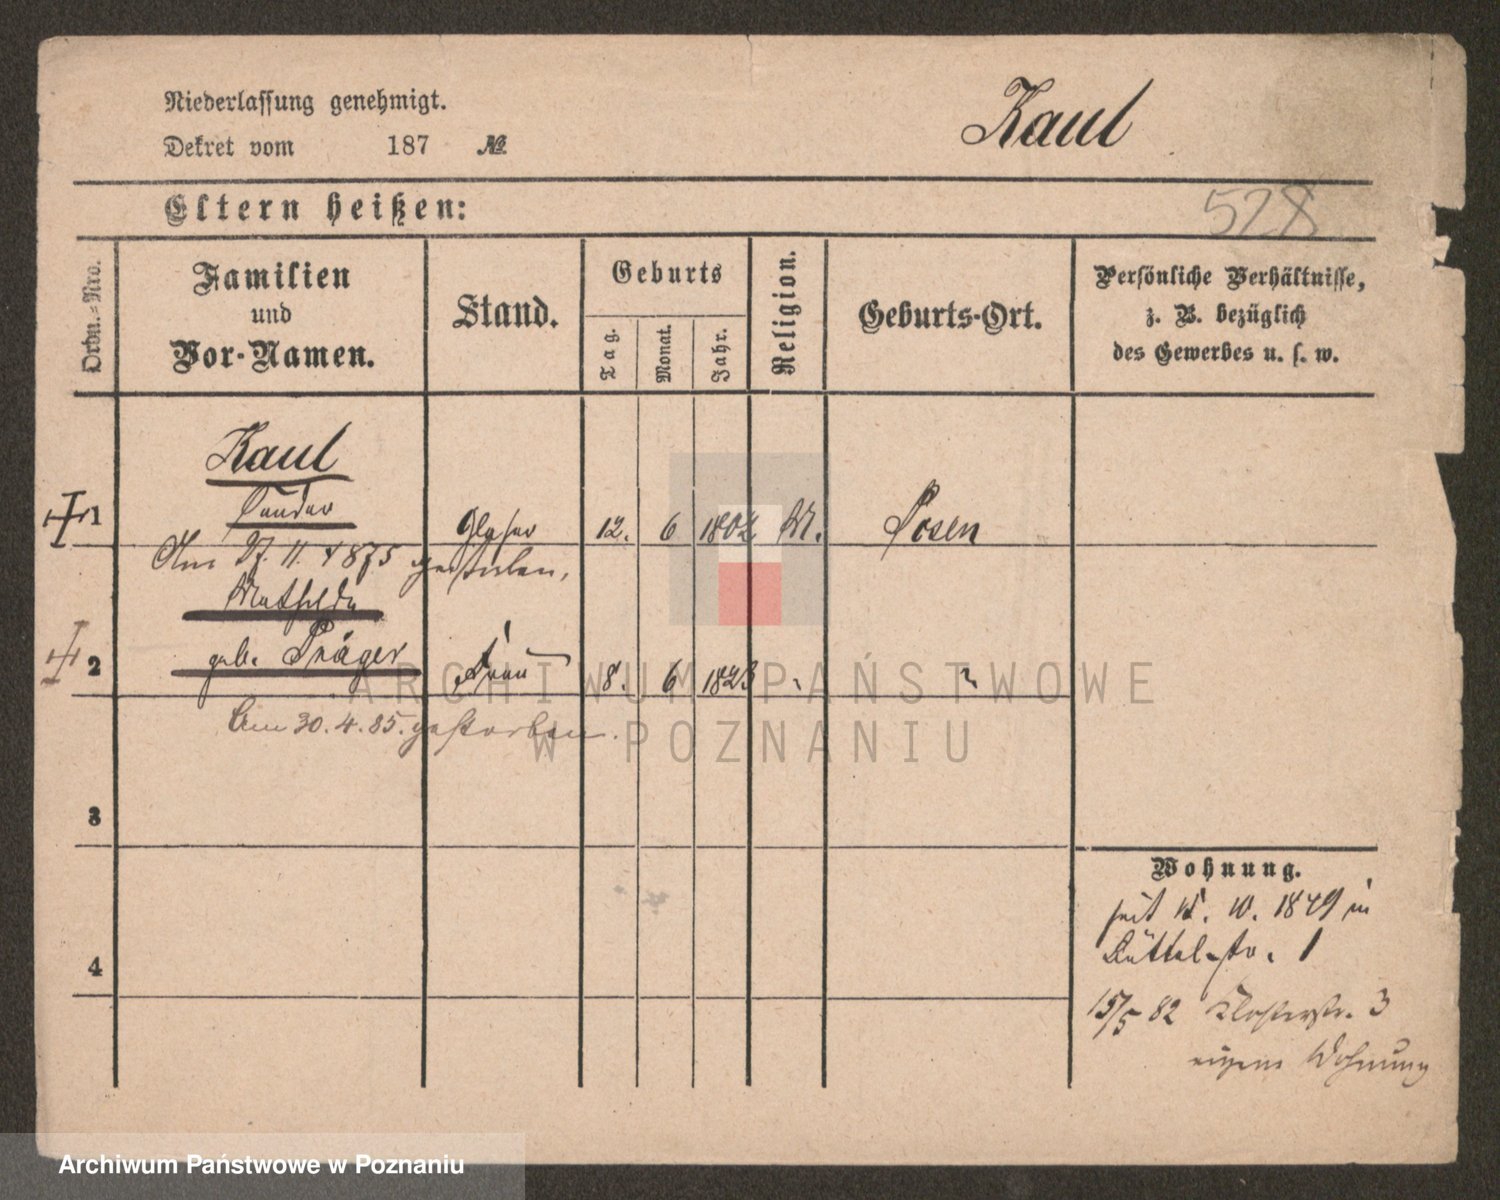 Niederlassung genehmigt.
Kaul
Dekret vom 187 №
Eltern heißen:
528
Ordn.=Nro.
Familien
und
Vor-Namen.
Stand.
Geburts
Tag.
Monat.
Jahr.
Religion.
Geburts-Ort.
Persönliche Verhältnisse,
z. B. bezüglich
des Gewerbes u. s. w.
Kaul
1 Sander Glaser 12. 6 1802 M. Posen
Am 27. 11. 1875 gestorben,
Mathilde
2 geb. Präger Frau 8. 6 1823
Am 30. 4. 85. gestorben.
3
4
Wohnung.
seit 1849 in
Büttelstr. 1
15/5 82 Klosterstr. 3
eigene Wohnung
ARCHIWUM PAŃSTWOWE
W POZNANIU
Archiwum Państwowe w Poznaniu